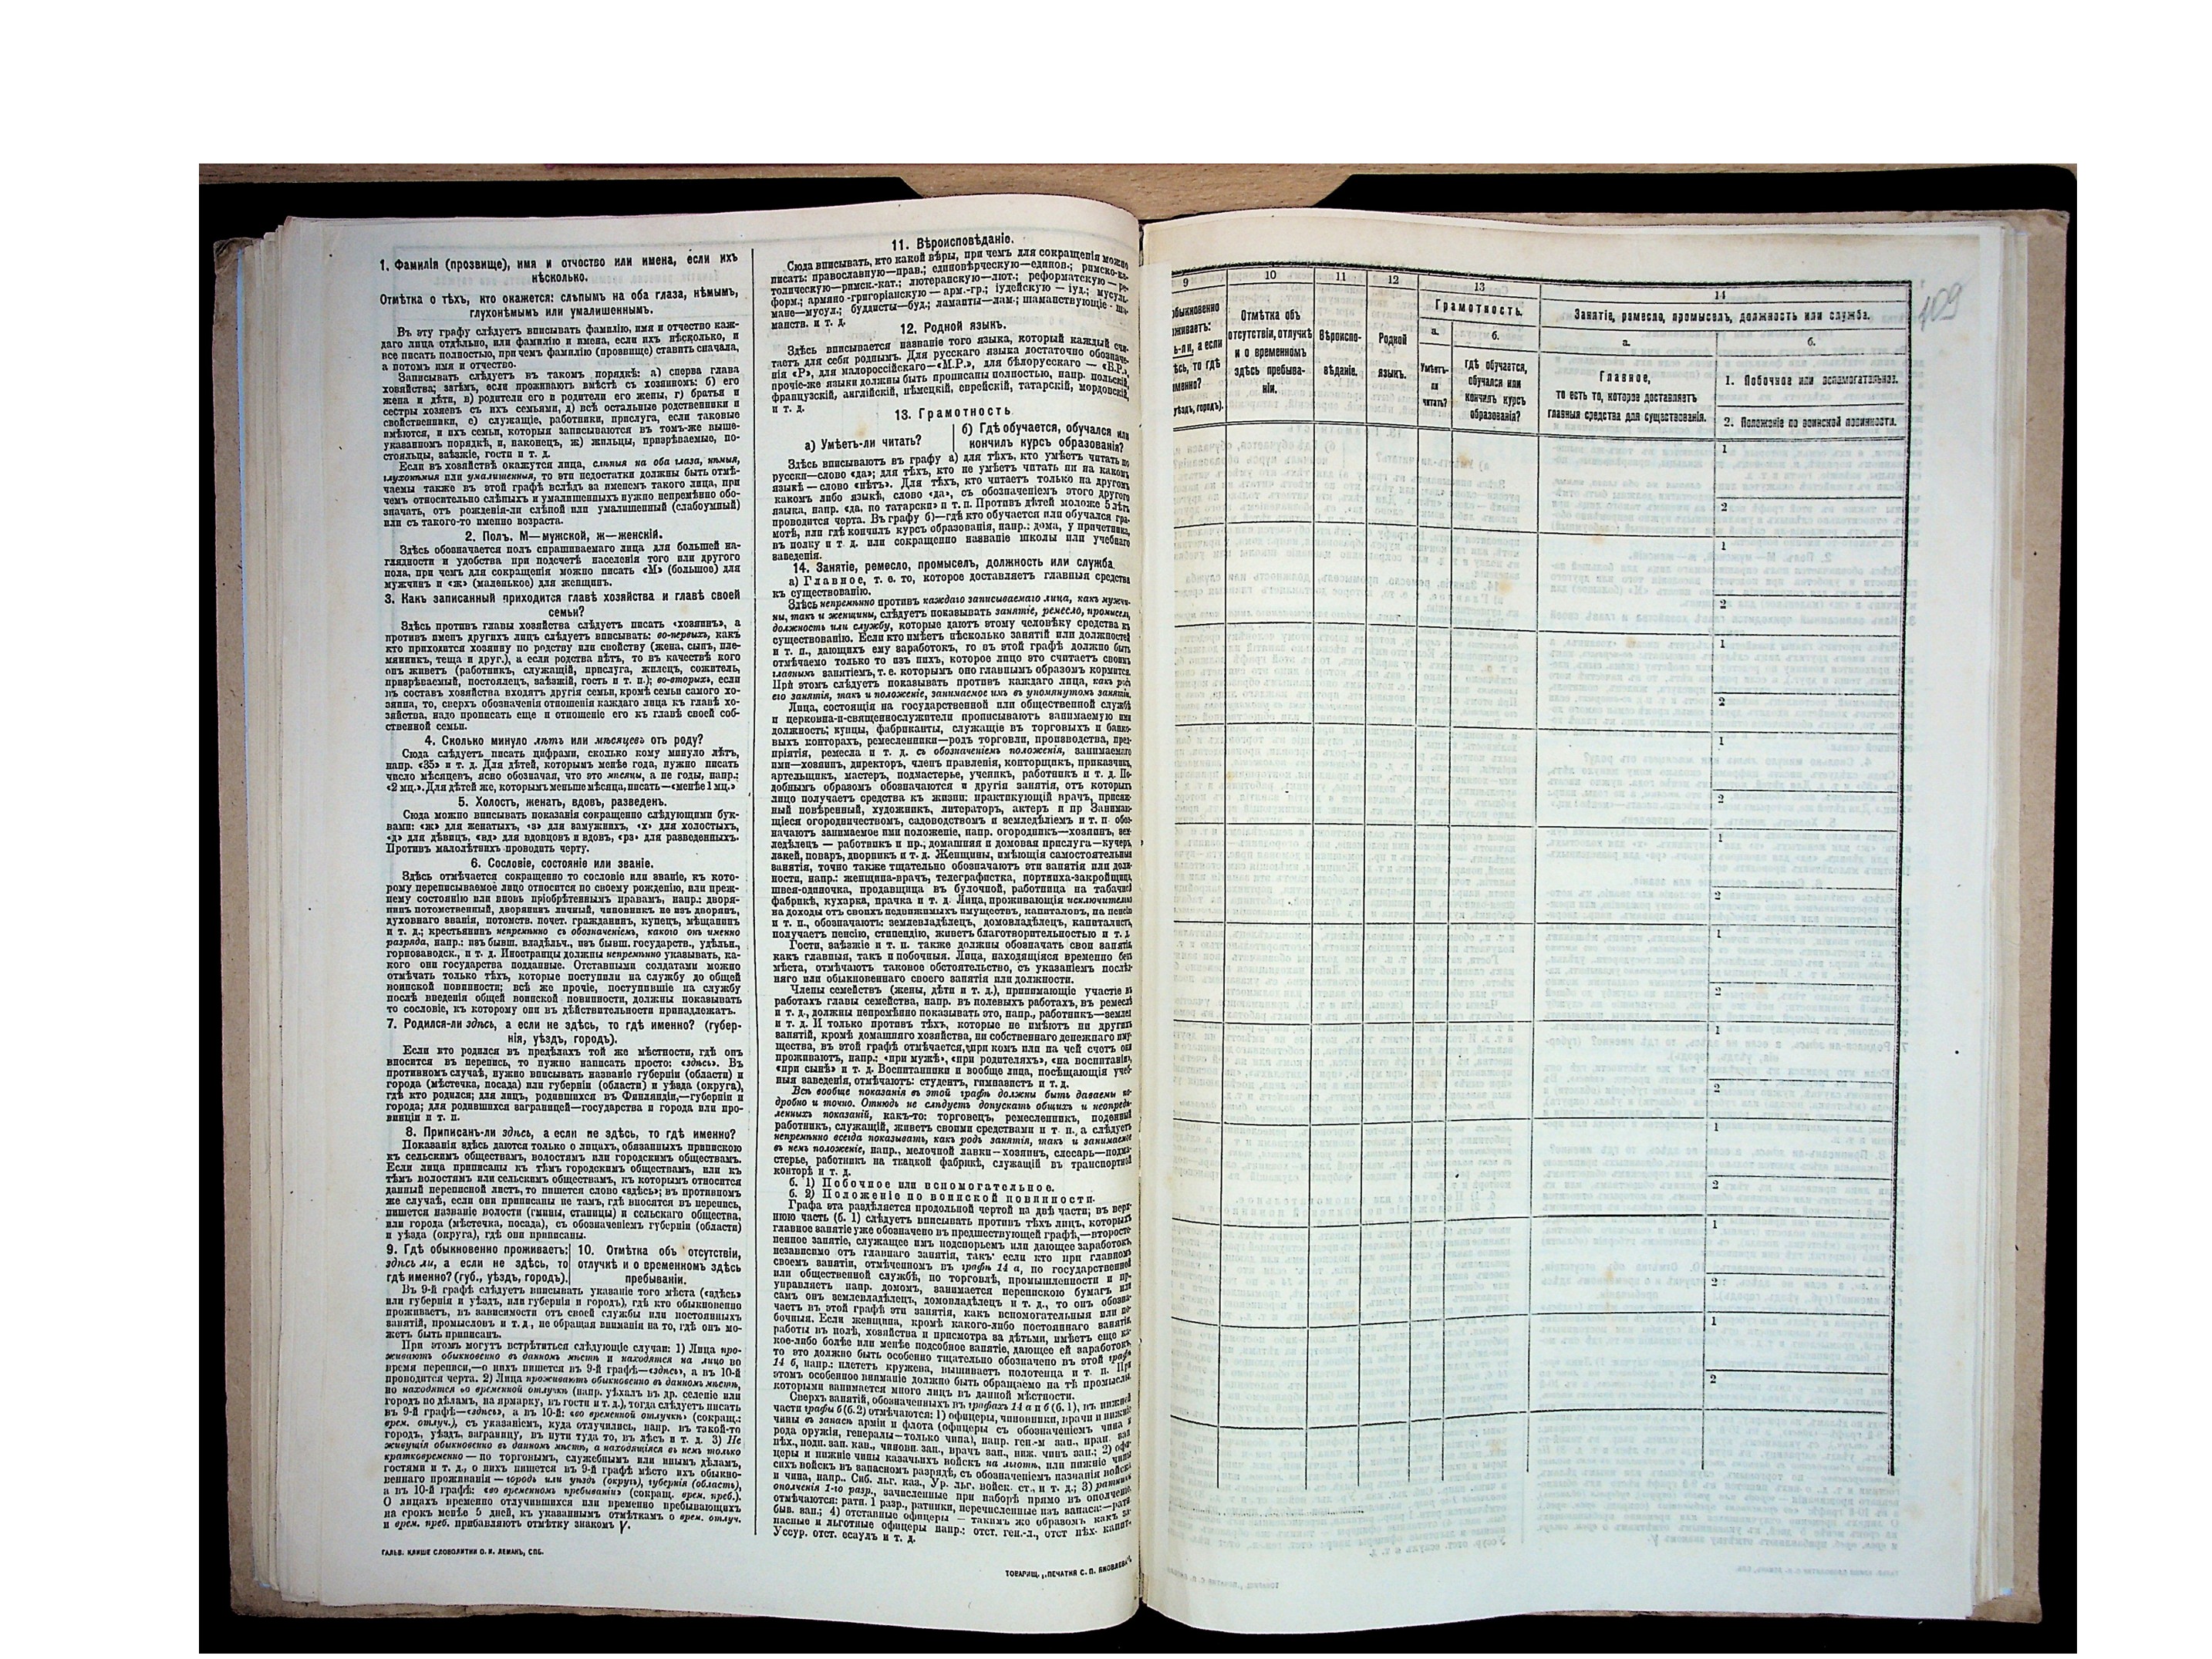 1. Фамилія (прозвище), имя и отчество или имена, если ихъ
нѣсколько.
Отмѣтка о тѣхъ, кто окажется: слѣпымъ на оба глаза, нѣмымъ,
глухонѣмымъ или умалишеннымъ.
Въ эту графу слѣдуетъ вписывать фамилію, имя и отчество каж-
даго лица отдѣльно, или фамилію и имена, если ихъ нѣсколько, и
все писать полностью, при чемъ фамилію (прозвище) ставить сначала,
а потомъ имя и отчество.
Записывать слѣдуетъ въ такомъ порядкѣ: а) сперва глава
хозяйства; затѣмъ, если проживаютъ вмѣстѣ съ хозяиномъ: б) его
жена и дѣти, в) родители его и родители его жены, г) братья и
сестры хозяевъ съ ихъ семьями, д) всѣ остальные родственники и
свойственники, е) служащіе, работники, прислуга, если таковые
имѣются, и ихъ семьи, которыя записываются въ томъ-же выше-
указанномъ порядкѣ, и, наконецъ, ж) жильцы, призрѣваемые, по-
стояльцы, заѣзжіе, гости и т. д.
Если въ хозяйствѣ окажутся лица, слѣпыя на оба глаза, нѣмыя,
глухонѣмыя или умалишенныя, то эти недостатки должны быть отмѣ-
чаемы также въ этой графѣ вслѣдъ за именемъ такого лица, при
чемъ относительно слѣпыхъ и умалишенныхъ нужно непремѣнно обо-
значать, отъ рожденія-ли слѣпой или умалишенный (слабоумный)
или съ такого-то именно возраста.
2. Полъ. М—мужской, ж—женскій.
Здѣсь обозначается полъ спрашиваемаго лица для большей на-
глядности и удобства при подсчетѣ населенія того или другого
пола, при чемъ для сокращенія можно писать «М» (большое) для
мужчинъ и «ж» (маленькое) для женщинъ.
3. Какъ записанный приходится главѣ хозяйства и главѣ своей
семьи?
Здѣсь противъ главы хозяйства слѣдуетъ писать «хозяинъ», а
противъ именъ другихъ лицъ слѣдуетъ вписывать: во-первыхъ, какъ
кто приходится хозяину по родству или свойству (жена, сынъ, пле-
мянникъ, теща и друг.), а если родства нѣтъ, то въ качествѣ кого
онъ живетъ (работникъ, служащій, прислуга, жилецъ, сожитель,
призрѣваемый, постоялецъ, заѣзжій, гость и т. п.); во-вторыхъ, если
въ составъ хозяйства входятъ другія семьи, кромѣ семьи самого хо-
зяина, то, сверхъ обозначенія отношенія каждаго лица къ главѣ хо-
зяйства, надо прописать еще и отношеніе его къ главѣ своей соб-
ственной семьи.
4. Сколько минуло лѣтъ или мѣсяцевъ отъ роду?
Сюда слѣдуетъ писать цифрами, сколько кому минуло лѣтъ,
напр. «35» и т. д. Для дѣтей, которымъ менѣе года, нужно писать
число мѣсяцевъ, ясно обозначая, что это мѣсяцы, а не годы, напр.:
«2 мц.». Для дѣтей же, которымъ меньше мѣсяца, писать—«менѣе 1 мц.»
5. Холостъ, женатъ, вдовъ, разведенъ.
Сюда можно вписывать показанія сокращенно слѣдующими бук-
вами: «ж» для женатыхъ, «з» для замужнихъ, «х» для холостыхъ,
«д» для дѣвицъ, «вд» для вдовцовъ и вдовъ, «рз» для разведенныхъ.
Противъ малолѣтнихъ проводить черту.
6. Сословіе, состояніе или званіе.
Здѣсь отмѣчается сокращенно то сословіе или званіе, къ кото-
рому переписываемое лицо относится по своему рожденію, или преж-
нему состоянію или вновь пріобрѣтеннымъ правамъ, напр.: дворя-
нинъ потомственный, дворянинъ личный, чиновникъ не изъ дворянъ,
духовнаго званія, потомств. почет. гражданинъ, купецъ, мѣщанинъ
и т. д.; крестьянинъ непремѣнно съ обозначеніемъ, какого онъ именно
разряда, напр.: изъ бывш. владѣльч., изъ бывш. государств., удѣльн.,
горнозаводск., и т. д. Иностранцы должны непремѣнно указывать, ка-
кого они государства подданные. Отставными солдатами можно
отмѣчать только тѣхъ, которые поступили на службу до общей
воинской повинности; всѣ же прочіе, поступившіе на службу
послѣ введенія общей воинской повинности, должны показывать
то сословіе, къ которому они въ дѣйствительности принадлежатъ.
7. Родился-ли здѣсь, а если не здѣсь, то гдѣ именно? (губер-
нія, уѣздъ, городъ).
Если кто родился въ предѣлахъ той же мѣстности, гдѣ онъ
вносится въ перепись, то нужно написать просто: «здѣсь». Въ
противномъ случаѣ, нужно вписывать названіе губерніи (области) и
города (мѣстечка, посада) или губерніи (области) и уѣзда (округа),
гдѣ кто родился; для лицъ, родившихся въ Финляндіи,—губерніи и
города; для родившихся заграницей—государства и города или про-
винціи и т. п.
8. Приписанъ-ли здѣсь, а если не здѣсь, то гдѣ именно?
Показанія здѣсь даются только о лицахъ, обязанныхъ припискою
къ сельскимъ обществамъ, волостямъ или городскимъ обществамъ.
Если лица приписаны къ тѣмъ городскимъ обществамъ, или къ
тѣмъ волостямъ или сельскимъ обществамъ, къ которымъ относится
данный переписной листъ, то пишется слово «здѣсь»; въ противномъ
же случаѣ, если они приписаны не тамъ, гдѣ вносятся въ перепись,
пишется названіе волости (гмины, станицы) и сельскаго общества,
или города (мѣстечка, посада), съ обозначеніемъ губерніи (области)
и уѣзда (округа), гдѣ они приписаны.
9. Гдѣ обыкновенно проживаетъ:
здѣсь ли, а если не здѣсь, то
гдѣ именно? (губ., уѣздъ, городъ).
10. Отмѣтка объ отсутствіи,
отлучкѣ и о временномъ здѣсь
пребываніи.
Въ 9-й графѣ слѣдуетъ вписывать указаніе того мѣста («здѣсь»
или губернія и уѣздъ, или губернія и городъ), гдѣ кто обыкновенно
проживаетъ, въ зависимости отъ своей службы или постоянныхъ
занятій, промысловъ и т. д., не обращая вниманія на то, гдѣ онъ мо-
жетъ быть приписанъ.
При этомъ могутъ встрѣтиться слѣдующіе случаи: 1) Лица про-
живаютъ обыкновенно въ данномъ мѣстѣ и находятся на лицо во
время переписи,—о нихъ пишется въ 9-й графѣ—«здѣсь», а въ 10-й
проводится черта. 2) Лица проживаютъ обыкновенно въ данномъ мѣстѣ,
но находятся во временной отлучкѣ (напр. уѣхалъ въ др. селеніе или
городъ по дѣламъ, на ярмарку, въ гости и т. д.), тогда слѣдуетъ писать
въ 9-й графѣ—«здѣсь», а въ 10-й: «во временной отлучкѣ» (сокращ.:
врем. отлуч.), съ указаніемъ, куда отлучились, напр. въ такой-то
городъ, уѣздъ, заграницу, въ пути туда то, въ лѣсъ и т. д. 3) Не
живущія обыкновенно въ данномъ мѣстѣ, а находящіяся въ немъ только
кратковременно — по торговымъ, служебнымъ или инымъ дѣламъ,
гостями и т. д., о нихъ пишется въ 9-й графѣ мѣсто ихъ обыкно-
веннаго проживанія — городъ или уѣздъ (округъ), губернія (область),
а въ 10-й графѣ: «во временномъ пребываніи» (сокращ. врем. преб.).
О лицахъ временно отлучившихся или временно пребывающихъ
на срокъ менѣе 5 дней, къ указаннымъ отмѣткамъ о врем. отлуч.
и врем. преб. прибавляютъ отмѣтку знакомъ V.
ГАЛЬВ. КЛИШЕ СЛОВОЛИТНИ О. И. ЛЕМАНЪ, СПБ.
11. Вѣроисповѣданіе.
Сюда вписывать, кто какой вѣры, при чемъ для сокращенія можно
писать: православную—прав.; единовѣрческую—единов.; римско-ка-
толическую—римск.-кат.; лютеранскую—лют.; реформатскую — ре-
форм.; армяно-григоріанскую — арм.-гр.; іудейскую — іуд.; мусуль-
мане—мусул.; буддисты—буд.; ламаиты—лам.; шаманствующіе - ша-
манств. и т. д.
12. Родной языкъ.
Здѣсь вписывается названіе того языка, который каждый счи-
таетъ для себя роднымъ. Для русскаго языка достаточно обозначе-
нія «Р», для малороссійскаго—«М.Р.», для бѣлорусскаго — «Б.Р.»,
прочіе-же языки должны быть прописаны полностью, напр. польскій,
французскій, англійскій, нѣмецкій, еврейскій, татарскій, мордовскій,
и т. д.
13. Грамотность
а) Умѣетъ-ли читать?
б) Гдѣ обучается, обучался или
кончилъ курсъ образованія?
Здѣсь вписываютъ въ графу а) для тѣхъ, кто умѣетъ читать по
русски—слово «да»; для тѣхъ, кто не умѣетъ читать ни на какомъ
языкѣ — слово «нѣтъ». Для тѣхъ, кто читаетъ только на другомъ
какомъ либо языкѣ, слово «да», съ обозначеніемъ этого другого
языка, напр. «да, по татарски» и т. п. Противъ дѣтей моложе 5 лѣтъ
проводится черта. Въ графу б)—гдѣ кто обучается или обучался гра-
мотѣ, или гдѣ кончилъ курсъ образованія, напр.: дома, у причетника,
въ полку и т. д. или сокращенно названіе школы или учебнаго
заведенія.
14. Занятіе, ремесло, промыселъ, должность или служба.
а) Главное, т. е. то, которое доставляетъ главныя средства
къ существованію.
Здѣсь непремѣнно противъ каждаго записываемаго лица, какъ мужчи-
ны, такъ и женщины, слѣдуетъ показывать занятіе, ремесло, промыселъ,
должность или службу, которые даютъ этому человѣку средства къ
существованію. Если кто имѣетъ нѣсколько занятій или должностей
и т. п., дающихъ ему заработокъ, то въ этой графѣ должно быть
отмѣчаемо только то изъ нихъ, которое лицо это считаетъ своимъ
главнымъ занятіемъ, т. е. которымъ оно главнымъ образомъ кормится.
При этомъ слѣдуетъ показывать противъ каждаго лица, какъ родъ
его занятія, такъ и положеніе, занимаемое имъ въ упомянутомъ занятіи.
Лица, состоящія на государственной или общественной службѣ
и церковно-и-священнослужители прописываютъ занимаемую ими
должность; купцы, фабриканты, служащіе въ торговыхъ и банко-
выхъ конторахъ, ремесленники—родъ торговли, производства, пред-
пріятія, ремесла и т. д. съ обозначеніемъ положенія, занимаемаго
ими—хозяинъ, директоръ, членъ правленія, конторщикъ, приказчикъ,
артельщикъ, мастеръ, подмастерье, ученикъ, работникъ и т. д. По-
добнымъ образомъ обозначаются и другія занятія, отъ которыхъ
лицо получаетъ средства къ жизни: практикующій врачъ, присяж-
ный повѣренный, художникъ, литераторъ, актеръ и пр Занимаю-
щіеся огородничествомъ, садоводствомъ и земледѣліемъ и т. п. обо-
значаютъ занимаемое ими положеніе, напр. огородникъ—хозяинъ, зем-
ледѣлецъ — работникъ и пр.; домашняя и домовая прислуга—кучеръ,
лакей, поваръ, дворникъ и т. д. Женщины, имѣющія самостоятельныя
занятія, точно также тщательно обозначаютъ эти занятія или долж-
ности, напр.: женщина-врачъ, телеграфистка, портниха-закройщица,
швея-одиночка, продавщица въ булочной, работница на табачной
фабрикѣ, кухарка, прачка и т. д. Лица, проживающія исключительно
на доходы отъ своихъ недвижимыхъ имуществъ, капиталовъ, на пенсіи
и т. п., обозначаютъ: землевладѣлецъ, домовладѣлецъ, капиталистъ,
получаетъ пенсію, стипендію, живетъ благотворительностью и т. д.
Гости, заѣзжіе и т. п. также должны обозначать свои занятія,
какъ главныя, такъ и побочныя. Лица, находящіяся временно безъ
мѣста, отмѣчаютъ таковое обстоятельство, съ указаніемъ послѣд-
няго или обыкновеннаго своего занятія или должности.
Члены семействъ (жены, дѣти и т. д.), принимающіе участіе въ
работахъ главы семейства, напр. въ полевыхъ работахъ, въ ремеслѣ
и т. д., должны непремѣнно показывать это, напр., работникъ—землед.
и т. д. И только противъ тѣхъ, которые не имѣютъ ни другихъ
занятій, кромѣ домашняго хозяйства, ни собственнаго денежнаго иму-
щества, въ этой графѣ отмѣчается, при комъ или на чей счетъ они
проживаютъ, напр.: «при мужѣ», «при родителяхъ», «на воспитаніи»,
«при сынѣ» и т. д. Воспитанники и вообще лица, посѣщающія учеб-
ныя заведенія, отмѣчаютъ: студентъ, гимназистъ и т. д.
Всѣ вообще показанія въ этой графѣ должны быть даваемы по-
дробно и точно. Отнюдь не слѣдуетъ допускать общихъ и неопредѣ-
ленныхъ показаній, какъ-то: торговецъ, ремесленникъ, поденный
работникъ, служащій, живетъ своими средствами и т. п., а слѣдуетъ
непремѣнно всегда показывать, какъ родъ занятія, такъ и занимаемое
въ немъ положеніе, напр., мелочной лавки—хозяинъ, слесарь—подма-
стерье, работникъ на ткацкой фабрикѣ, служащій въ транспортной
конторѣ и т. д.
б. 1) Побочное или вспомогательное.
б. 2) Положеніе по воинской повинности.
Графа эта раздѣляется продольной чертой на двѣ части; въ верх-
нюю часть (б. 1) слѣдуетъ вписывать противъ тѣхъ лицъ, которыхъ
главное занятіе уже обозначено въ предшествующей графѣ,—второсте-
пенное занятіе, служащее имъ подспорьемъ или дающее заработокъ,
независимо отъ главнаго занятія, такъ: если кто при главномъ
своемъ занятіи, отмѣченномъ въ графѣ 14 а, по государственной
или общественной службѣ, по торговлѣ, промышленности и пр.
управляетъ напр. домомъ, занимается перепискою бумагъ или
самъ онъ землевладѣлецъ, домовладѣлецъ и т. д., то онъ обозна-
чаетъ въ этой графѣ эти занятія, какъ вспомогательныя или по-
бочныя. Если женщина, кромѣ какого-либо постояннаго занятія,
работы въ полѣ, хозяйства и присмотра за дѣтьми, имѣетъ еще ка-
кое-либо болѣе или менѣе подсобное занятіе, дающее ей заработокъ,
то это должно быть особенно тщательно обозначено въ этой графѣ
14 б, напр.: плететъ кружева, вышиваетъ полотенца и т. п. При
этомъ особенное вниманіе должно быть обращаемо на тѣ промыслы,
которыми занимается много лицъ въ данной мѣстности.
Сверхъ занятій, обозначенныхъ въ графахъ 14 а и б (б. 1), въ нижней
части графы б (б. 2) отмѣчаются: 1) офицеры, чиновники, врачи и нижніе
чины въ запасѣ арміи и флота (офицеры съ обозначеніемъ чина и
рода оружія, генералы—только чина), напр. ген-м зап., прап. зап.
пѣх., подп. зап. кав., чиновн. зап., врачъ зап., ниж. чинъ зап.; 2) офи-
церы и нижніе чины казачьихъ войскъ на льготѣ, или нижніе чины
сихъ войскъ въ запасномъ разрядѣ, съ обозначеніемъ названія войска
и чина, напр. Сиб. льг. каз., Ур. льг. войск. ст., и т. д.; 3) ратники
ополченія 1-го разр., зачисленные при наборѣ прямо въ ополченіе,
отмѣчаются: ратн. 1 разр., ратники, перечисленные изъ запаса:—ратн.
быв. зап.; 4) отставные офицеры — такимъ же образомъ какъ за-
пасные и льготные офицеры напр.: отст. ген.-л., отст пѣх. капит.,
Уссур. отст. есаулъ и т. д.
ТОВАРИЩ. „ПЕЧАТНЯ С. П. ЯКОВЛЕВА“.
109
9
10
11
12
13
14
Отмѣтка объ
отсутствіи, отлучкѣ
и о временномъ
здѣсь пребыва-
ніи.
Вѣроиспо-
вѣданіе.
Родной
языкъ.
Грамотность.
а.
б.
Умѣетъ-
ли
читать?
гдѣ обучается,
обучался или
кончилъ курсъ
образованія?
Занятіе, ремесло, промыселъ, должность или служба.
а.
б.
Главное,
то есть то, которое доставляетъ
главныя средства для существованія.
1. Побочное или вспомогательное.
2. Положеніе по воинской повинности.
1
2
1
2
1
2
1
2
1
2
1
2
1
2
1
2
1
2
1
2